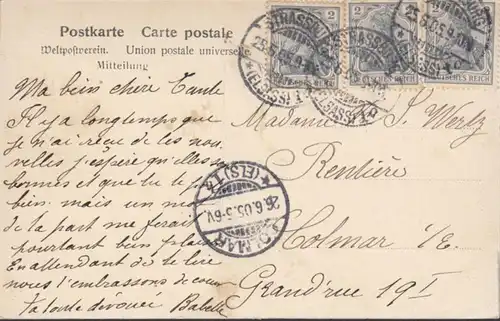 Postkarte Carte postale
Weltpostverein. Union postale universelle
Mitteilung
STRASSBURG
25.6.05.
*(ELSASS)1
2 2
DEUTSCHES REICH DEUTSCHES REICH
Ma bien chère Tante
Il y a longtemps que
je n'ai reçu de tes nou
velles j'espère qu'elles se
bonnes et que tu te p
bien. mais un mot
de ta part me ferait
pourtant bien plaisir
En attendant de te lire
nous t'embrassons de cœur
Ta toute dévouée Babette
Madame S. Wertz
Rentière
Colmar i/E.
Grand'rue 19 I
COLMAR
26.6.05.5-6V.
*(ELS)1a